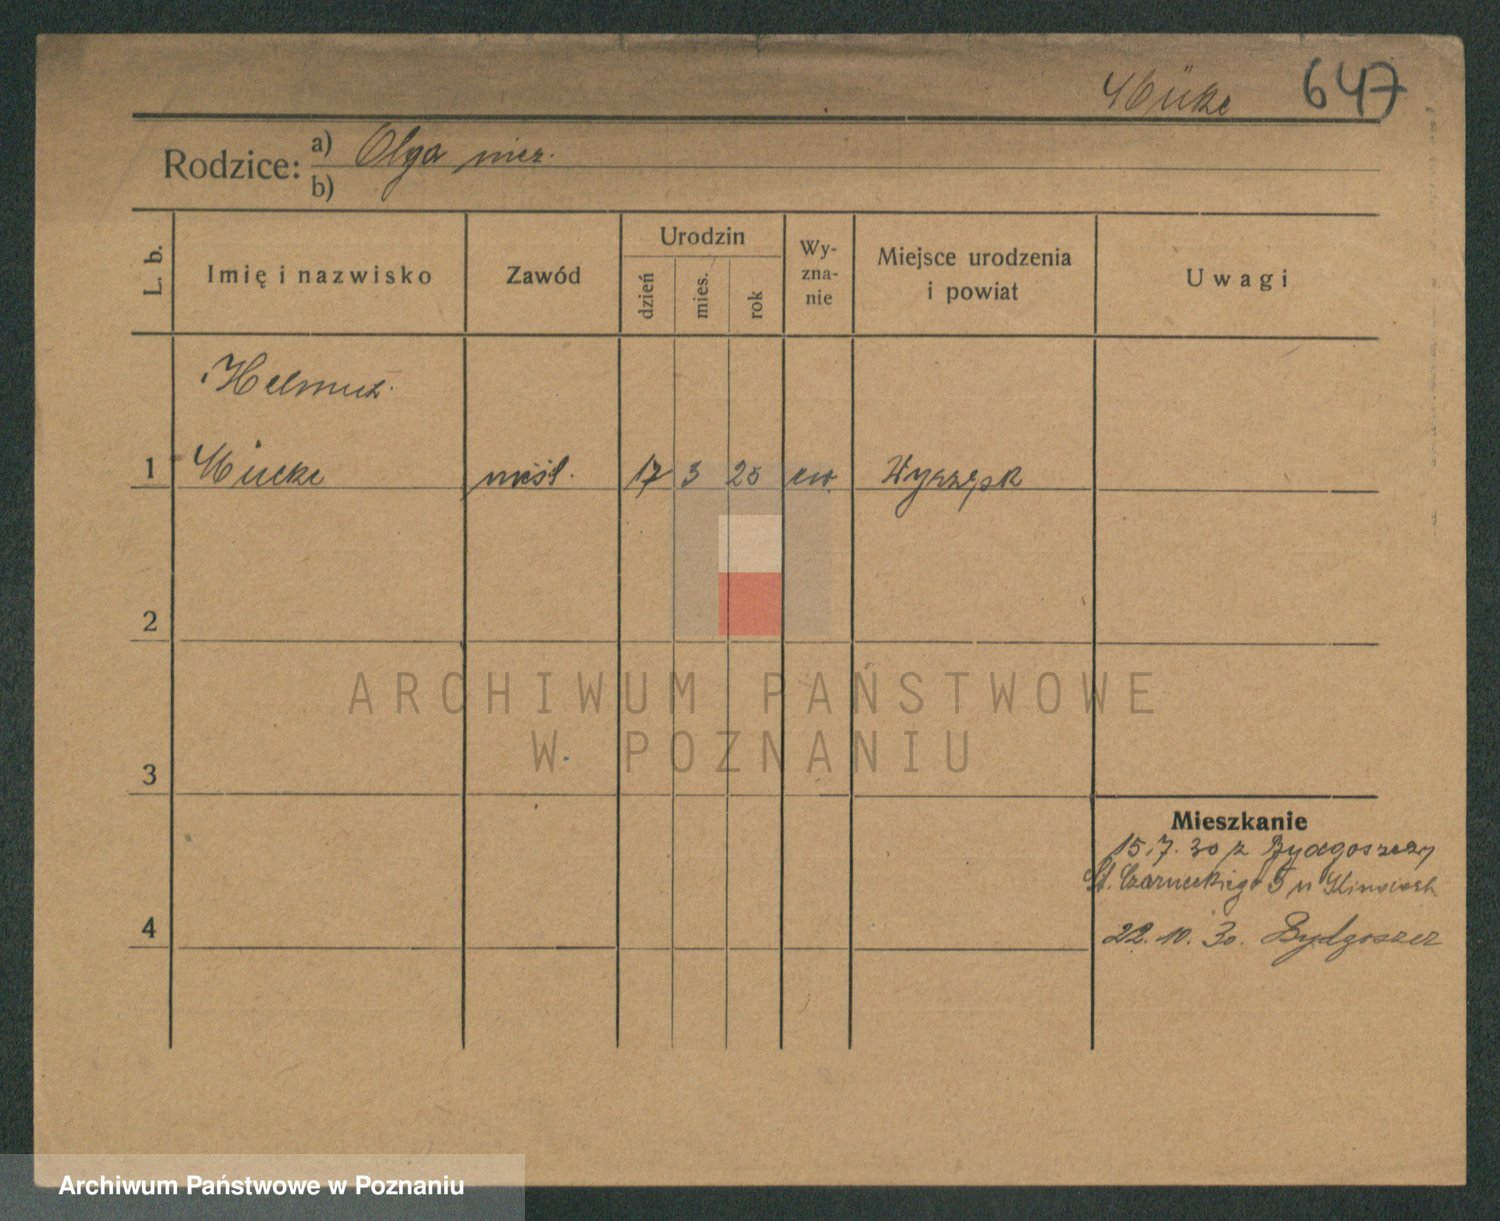 Mücke 647
Rodzice: a) Olga niez.
b)
L. b.
Imię i nazwisko
Zawód
Urodzin
dzień
mies.
rok
Wy-
zna-
nie
Miejsce urodzenia
i powiat
Uwagi
Helmut
1 Mücke 17 3 25 ew. Wyrzysk
2
3
4
Mieszkanie
15.7.30 z Bydgoszczy
St. Czarneckiego 5 u
22.10.30. Bydgoszcz
ARCHIWUM PAŃSTWOWE
W POZNANIU
Archiwum Państwowe w Poznaniu